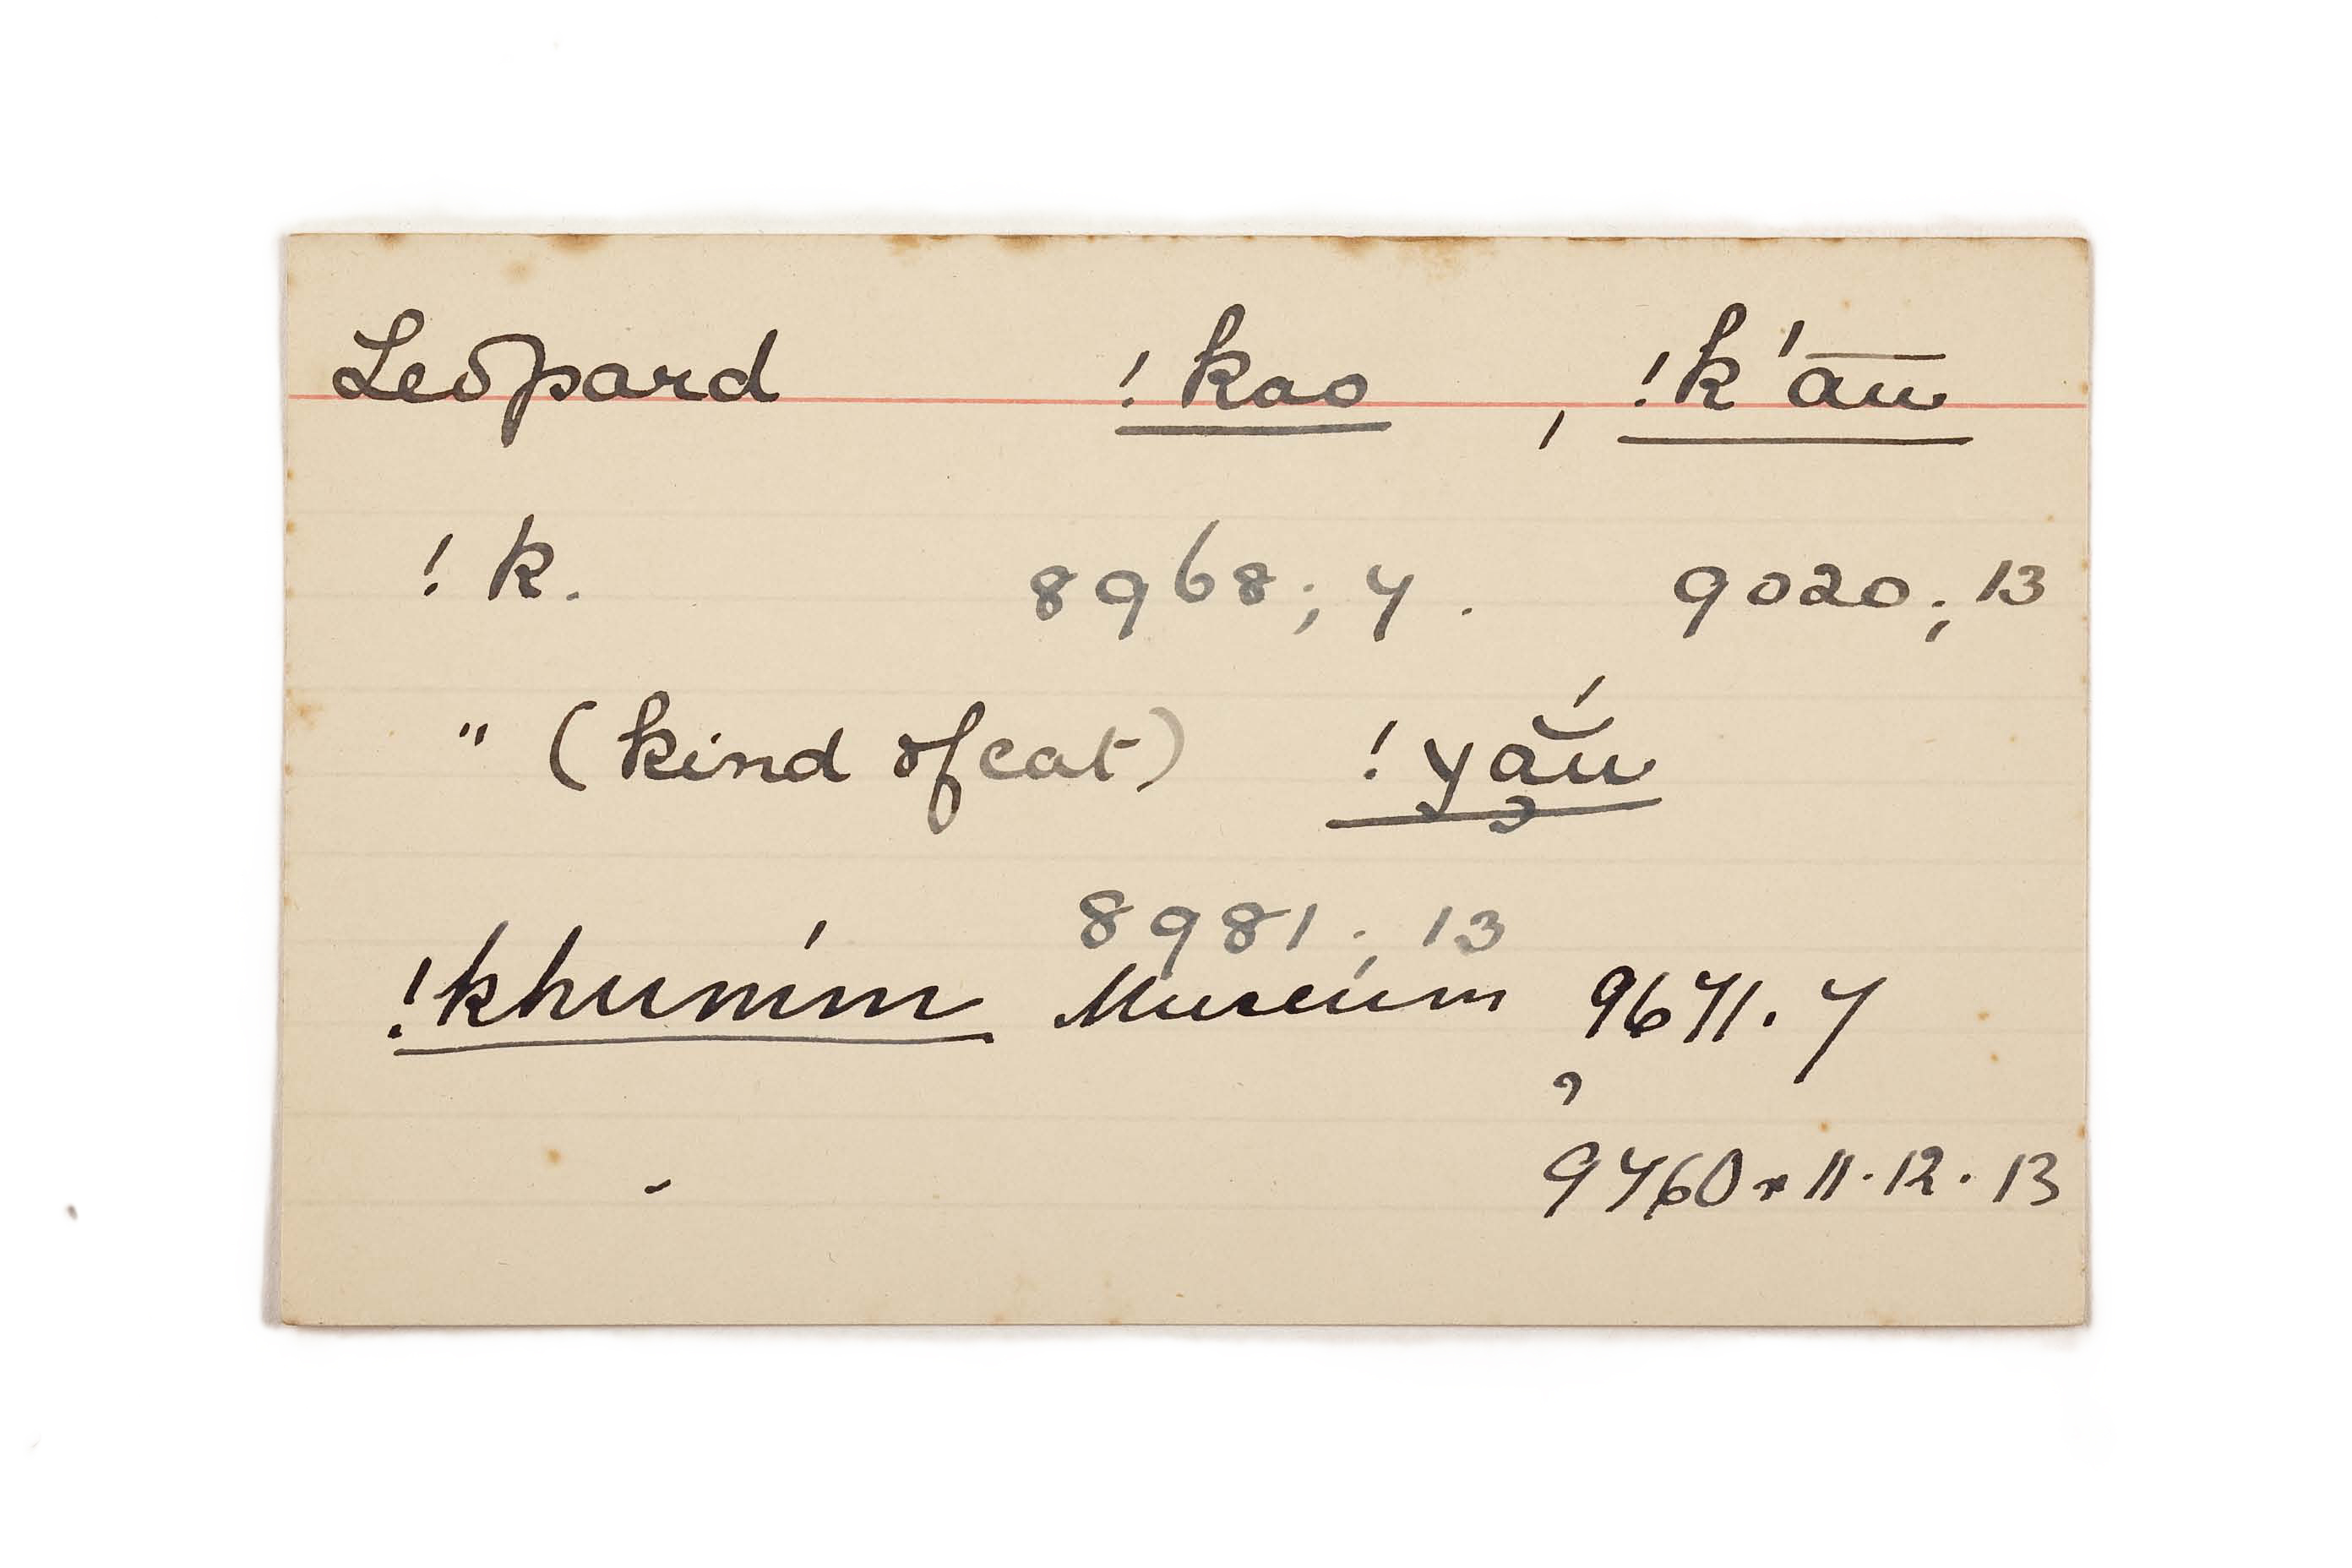 Leopard !kao , !k'a͞u
!k. 8968; 7. 9020; 13
" (kind of cat) !yắ̰u
8981; 13
!khum̍m Museum 9671. 7
?
9760 . 11. 12. 13